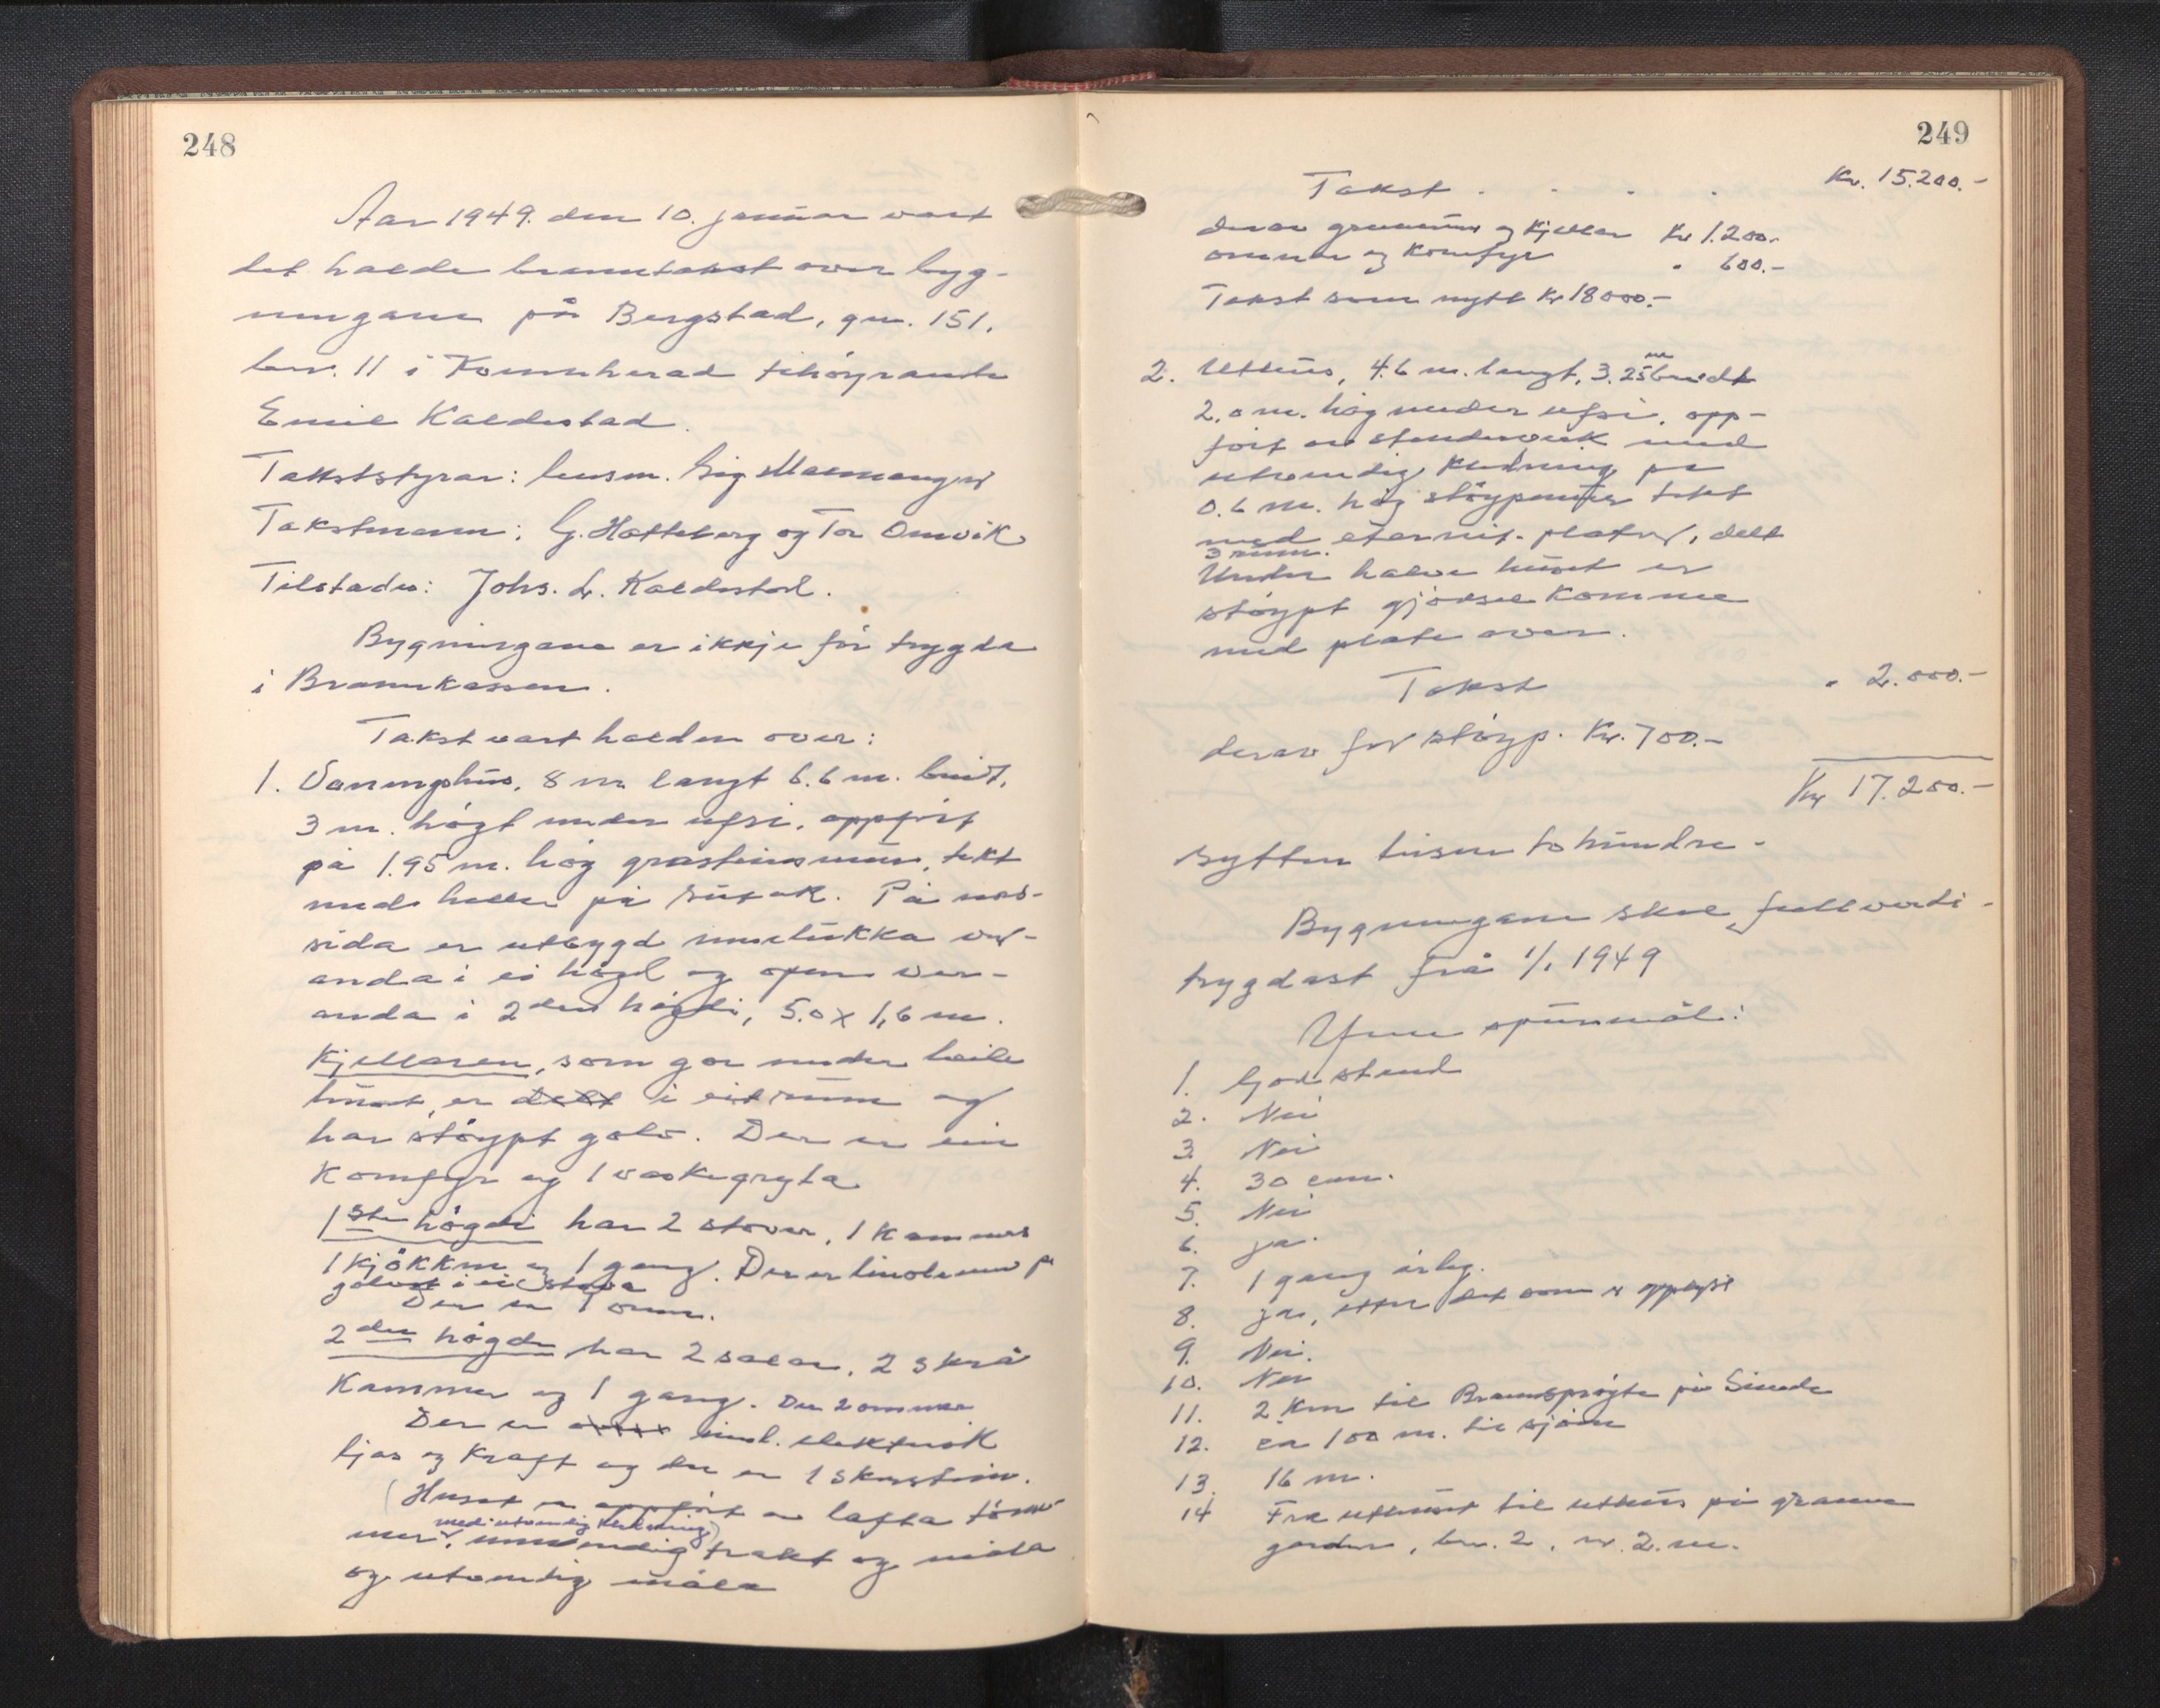 248
Aar 1949. den 10. januar vart
det halde branntakst over byg-
ningane på Bergstad, gnr. 151,
bnr. 11 i Kvinnherad tihøyrande
Emil Kaldestad.
Takststyrar: lensm. Sig. Malmanger
Takstmenn: G. Hatteberg og Tor Omvik
Tilstades: Johs. L. Kaldestad.
Bygningane er ikkje før trygda
i Brannkassen.
Takst vart halden over:
1. Vaaningshus, 8 m langt 6.6 m. breidt,
3 m. høgt under ufsi, oppført
på 1.95 m. høg grasteinsmur, tekt
med heller på sutak. På
sida er utbygd innelukka ver-
anda i ei høgd og open ver-
anda i 2den høgdi, 5.0 x 1,6 m.
Kjellaren, som gar under heile
huset, er delt i eit rum og
har støypt golv. Der er ein
Komfyr og 1 vaskegryta
1ste høgdi har 2 stover, 1 kammers
1 kjøkken og 1 gang. Der er linoleum på
golvet i ei stova
Der er 1 omn.
2den høgdi har 2 salar, 2 skrå
Kammer og 1 gang. Der 2 omner
Der er innl. elektrisk
ljos og kraft og der er 1 skorstein.
(Huset er oppført av lafta tøm-
mer, med utvendig kledning)
innvendig trekt og måla
og utvendig måla
249
Takst . . . . Kr. 15.200.-
derav grunnmur og Kjellar Kr 1.200.-
omner og Komfyr " 600.-
Takst som nytt Kr 18000.-
2. Uthus, 4.6 m. langt, 3.25 m breidt
2.0 m. høg under ufsi, opp-
ført av stenderverk med
utvendig kledning på
0.6 m. høg støypemur tekt
med eternit-plater, delt
3 rum.
Under halve huset er
støypt gjødselkomme
med plate over.
Takst " 2.000.-
derav for støyp. Kr. 700.-
Kr 17.200.-
Sytten tusen to hundre -
Bygningane skal fullverdi-
trygdast frå 1/1 1949
Ymse spursmål:
1. God stand
2. Nei
3. Nei
4. 30 cm.
5. Nei
6. Ja.
7. 1 gang årleg.
8. Ja, etter det som er opplyst
9. Nei.
10. Nei
11. 2 Km til Brannsprøyte på Sunde
12. ca 100 m. til sjøen
13. 16 m.
14 Fra uthuset til uthus på granne
garden, bnr. 2, er 2. m.